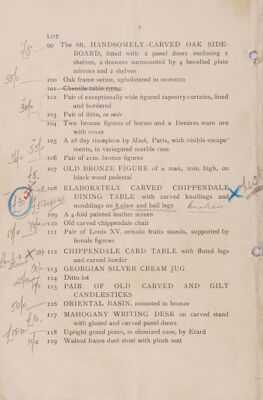 8
LOT
99 The 6ft. HANDSOMELY-CARVED OAK SIDE-
BOARD, fitted with 2 panel doors enclosing 2
shelves, 2 drawers surmounted by 4 bevelled plate
mirrors and 2 shelves
100 Oak frame settee, upholstered in morocco
101 Chenille table cover
102 Pair of exceptionally wide figured tapestry curtains, lined
and bordered
103 Pair of ditto, in suite
104 Two bronze figures of horses and a Benares ware urn
with cover
105 A 28 day timepiece by Mesk, Paris, with visible escape-
ments, in variegated marble case
106 Pair of 21in. bronze figures
107 OLD BRONZE FIGURE of a man, 20in. high, on
black wood pedestal
108 ELABORATELY CARVED CHIPPENDALE
DINING TABLE with carved knullings and
mouldings on 8 claw and ball legs
109 A 4-fold painted leather screen
110 Old carved chippendale chair
111 Pair of Louis XV. ormolu fruits stands, supported by
female figures
112 CHIPPENDALE CARD TABLE with fluted legs
and carved border
113 GEORGIAN SILVER CREAM JUG
114 Ditto lot
115 PAIR OF OLD CARVED AND GILT
CANDLESTICKS
116 ORIENTAL BASIN, mounted in bronze
117 MAHOGANY WRITING DESK on carved stand
with glazed and carved panel doors
118 Upright grand piano, in ebonized case, by Erard
119 Walnut frame duet stool with plush seat